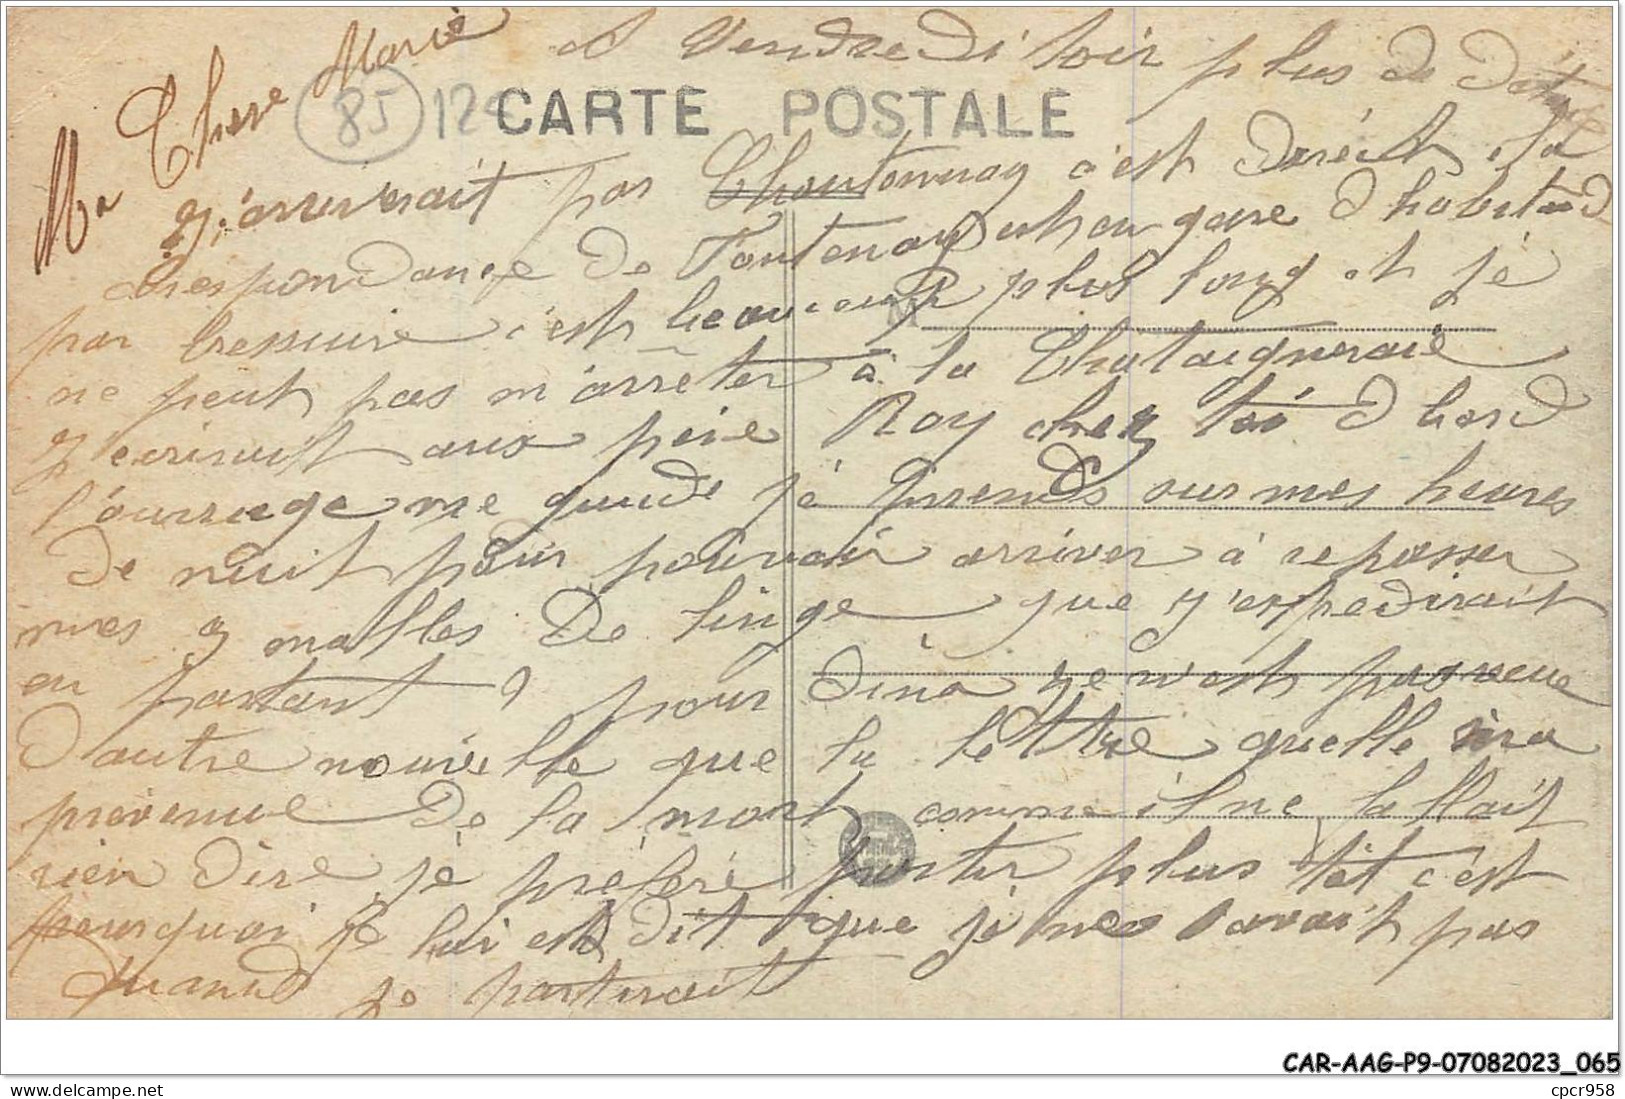 Ma Chere Marie
A Vendredi soir plus de détail
85 12
CARTE POSTALE
J'arriverait par Chantonnay c'est direct, la
correspondance de Fontenay gare d'habitud
par bressuire c'est beaucoup plus long et je
M
ne peut pas m'arrêter à la Chataigneraie
J'ecrirait aux père Roy chez toi d'bord
l'ouvrage me je prends sur mes heures
de nuit pour pouvoir arriver à repasser
mes 3 malles de linge que j'expedirait
en partant, pour Dina je n'est pas reçue
d'autre nouvelle que la lettre quelle m'a
prevenue de la mort comme il ne fallait
rien dire je préféré partir plus tôt c'est
pourquoi je lui est dit que je ne savait pas
quand je partirait
CAR-AAG-P9-07082023_065
www.delcampe.net
cpcr958